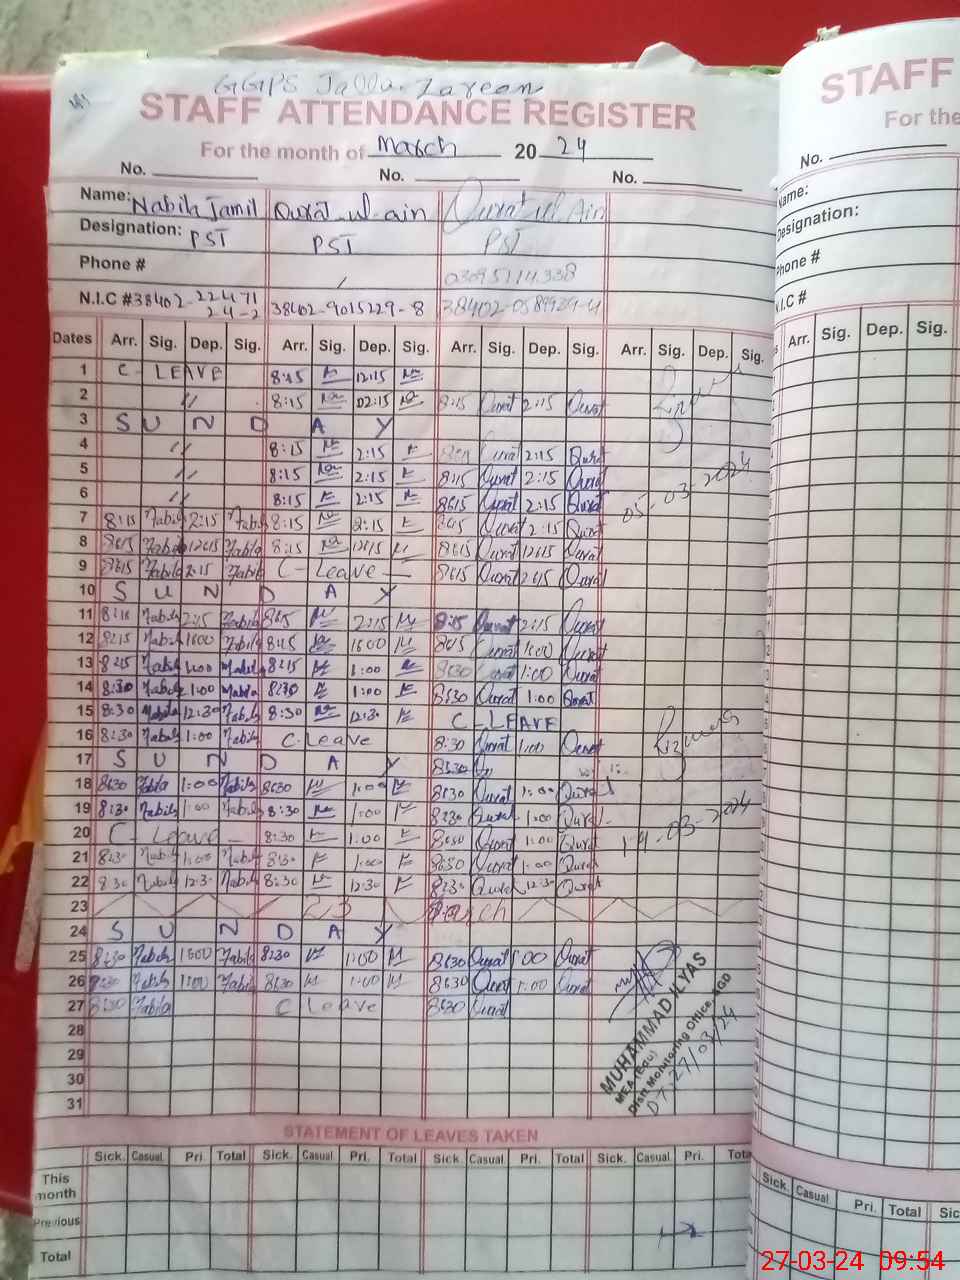 GGPS Jalla Zareen
STAFF ATTENDANCE REGISTER
For the month of March 20 24
No. No. No.
Name: Nabila Jamil Qurat-ul-ain Qurat ul Ain
Designation: PST PST PST
Phone #
N.I.C # 38402-22471 24-2 38402-9015229-8
Dates Arr. Sig. Dep. Sig. Arr. Sig. Dep. Sig. Arr. Sig. Dep. Sig. Arr. Sig. Dep. Sig.
1 C-LEAVE 8:15 12:15
2 " 8:15 02:15 8:15 Qurat 2:15 Qurat
3 S U N D A Y
4 " 8:15 2:15 Qurat 2:15 Qurat
5 " 8:15 2:15 8:15 Qurat 2:15 Qurat
6 " 8:15 2:15 8:15 Qurat 2:15 Qurat
05-03-2024
7 8:15 Nabila 2:15 Nabila 8:15 2:15 8:15 Qurat 2:15 Qurat
8 8:15 Nabila 12:15 Nabila 8:15 12:15 8:15 Qurat 12:15 Qurat
9 8:15 Nabila 2:15 Nabila C-Leave 8:15 Qurat 2:15 Qurat
10 S U N D A Y
11 8:15 Nabila 2:15 Nabila 8:15 2:15 8:15 Qurat 2:15 Qurat
12 8:15 Nabila 1:00 Nabila 8:15 1:00 8:15 Qurat 1:00 Qurat
13 8:15 Nabila 1:00 Nabila 8:15 1:00 8:30 Qurat 1:00 Qurat
14 8:30 Nabila 1:00 Nabila 8:30 1:00 8:30 Qurat 1:00 Qurat
15 8:30 Nabila 12:30 Nabila 8:30 12:30 C-LEAVE
16 8:30 Nabila 1:00 Nabila C-Leave 8:30 Qurat 1:00 Qurat
17 S U N D A Y 8:30
18 8:30 Nabila 1:00 Nabila 8:30 1:00 8:30 Qurat 1:00 Qurat
19 8:30 Nabila 1:00 Nabila 8:30 1:00 8:30 Qurat 1:00 Qurat
19-03-2024
20 C-Leave 8:30 1:00 8:30 Qurat 1:00 Qurat
21 8:30 Nabila 1:00 Nabila 8:30 1:00 8:30 Qurat 1:00 Qurat
22 8:30 Nabila 12:30 Nabila 8:30 12:30 8:30 Qurat 12:30 Qurat
23 23 March
24 S U N D A Y
25 8:30 Nabila 1:00 Nabila 8:30 1:00 8:30 Qurat 1:00 Qurat
26 8:30 Nabila 1:00 Nabila 8:30 1:00 8:30 Qurat 1:00 Qurat
27 8:30 Nabila C Leave 8:30 Qurat
28
29
30
31
MUHAMMAD ILYAS
MEA (Edu)
Distt Monitoring Office, SGD
DT. 27/03/24
STATEMENT OF LEAVES TAKEN
Sick. Casual. Pri. Total Sick. Casual. Pri. Total Sick. Casual. Pri. Total Sick. Casual. Pri. Total
This month
Previous
Total
STAFF
For the
No.
Name:
Designation:
Phone #
N.I.C #
Arr. Sig. Dep. Sig.
Sick. Casual Pri. Total Sic
27-03-24 09:54